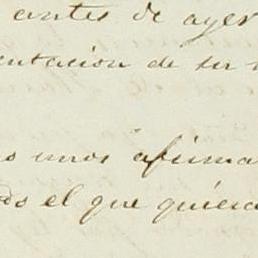 antes de ayer
entacion de su
os unos afirma
do el que quiera